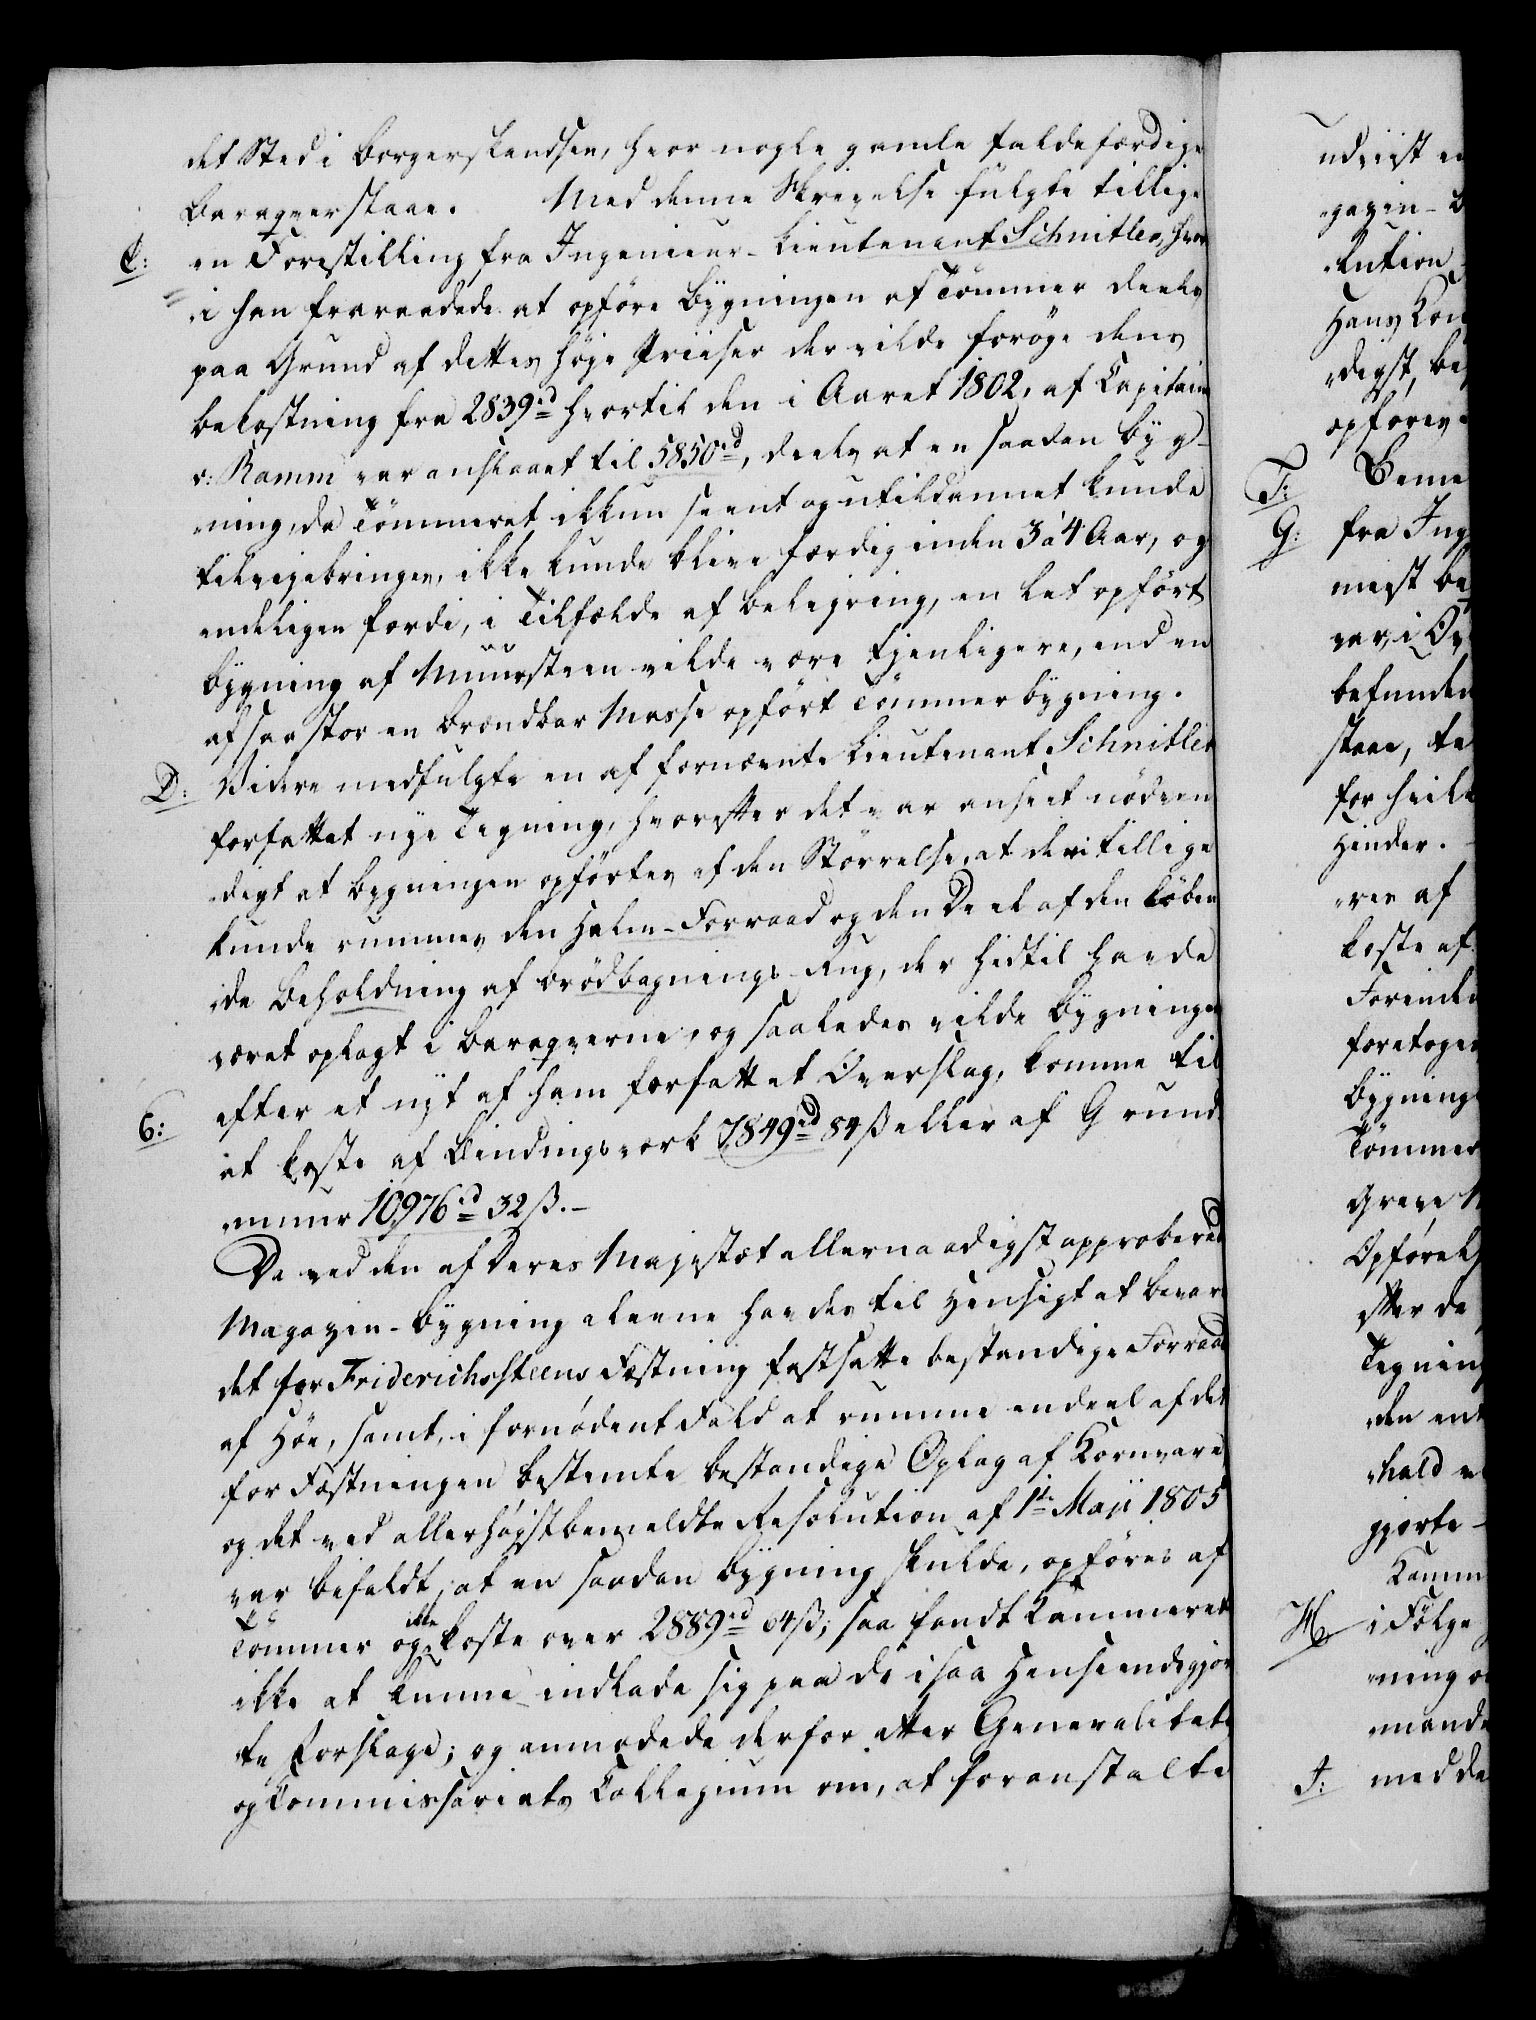 det Sted i Borgerskandsen, hvor nogle gamle faldefærdige
Baraqver staae. Med denne Skrivelse fulgte tillige
C: en Forestilling fra Ingenieur-Lieutenant Schnitler, hvor
i han fraraadede at opføre Bygningen af Tømmer deels
paa Grund af dettes høje Priiser der vilde forøge dens
bekostning fra 2839rd hvortil den i Aaret 1802, af Capitain
v: Ramm var anslaaet til 5850rd, deels at en saadan Byg-
ning, da Tømmeret ikkun seent og utildannet kunde
tilveiebringes, ikke kunde blive færdig inden 3 á 4 Aar, og
endeligen fordi, i Tilfælde af Belejring, en let opført
Bygning af Muursteen vilde være tjenligere, end en
af saa stor en brændbar Masse opført Tømmerbygning.
D: Videre medfulgte en af fornævnte Lieutenant Schnitler
forfattet nye Tegning, hvorefter det var anseet nødven
digt at bygningen opførtes af den Størrelse, at den tillige
kunde rummes den Halm-Forraad og den Deel af den løben
de Beholdning af brødbagnings-Rug, der hidtil havde
været oplagt i baraqverne, og saaledes vilde Bygningen
E: efter et nyt af ham forfattet Overslag, komme til
at koste af Bindingsværk 7849rd 84ß eller af Grund
muur 10976rd 32ß.-
Da ved den af Deres Majestæt allernaadigst approberede
Magazin-bygning aleene havdes til Hensigt at bevare
det for Friderichssteens Fæstning fastsatte bestandige Forraad
af Høe, samt, i fornødent Fald at rumme en deel af det
for Fæstningen bestemte bestandige Oplag af Kornvare
og det ved allerhøjstbemeldte Resolution af 1te Maji 1805
var befaldt, at en saadan bygning skulde, opføres af
Tømmer og ikke koste over 2889rd 64ß; saa fandt Kammeret
ikke at kunne indlade sig paa de i saa Henseende gjor
te Forslage; og anmodede derfor atter Generalitets
og Commissariats Collegium om, at foranstalte
udviist en
gazin-B
lution
Hans Kon
digst, be
opføres
F: Beme
G: fra Ing
mest be
var i Ov
befunden
staae, te
for hvilk
Hinder.
ren af
koste af
Forinden
foretoges
bygning
Tømmer
Greve M
Opførels
efter de
Tegning
den ent
hold
gjorte-
Kamm
H i Følge
ning o
mande
I: med de